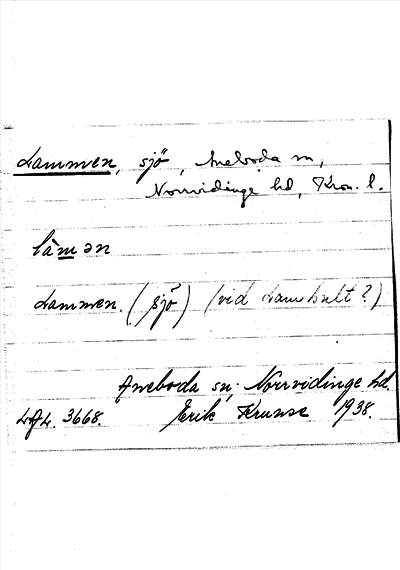 Lammen, sjö, Aneboda sn,
Norrvidinge hd, Kron. l.
làmən
Lammen. (sjö) (vid Lamhult?)
Aneboda sn; Norrvidinge hd.
LAL. 3668. Erik Krunse 1938.